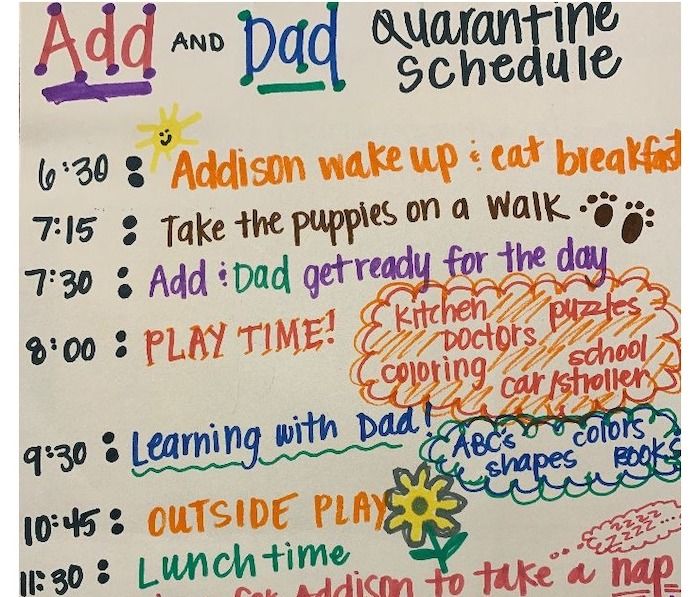 Add AND Dad Quarantine
Schedule
6:30 : Addison wake up & eat breakfast
7:15 : Take the puppies on a walk
7:30 : Add & Dad get ready for the day
8:00 : PLAY TIME!
Kitchen puzzles
Doctors
coloring school
car/stroller
9:30 : Learning with Dad!
ABC's colors
shapes Books
10:45 : OUTSIDE PLAY
11:30 : Lunch time
zzzz
zzzzz...
for Addison to take a nap